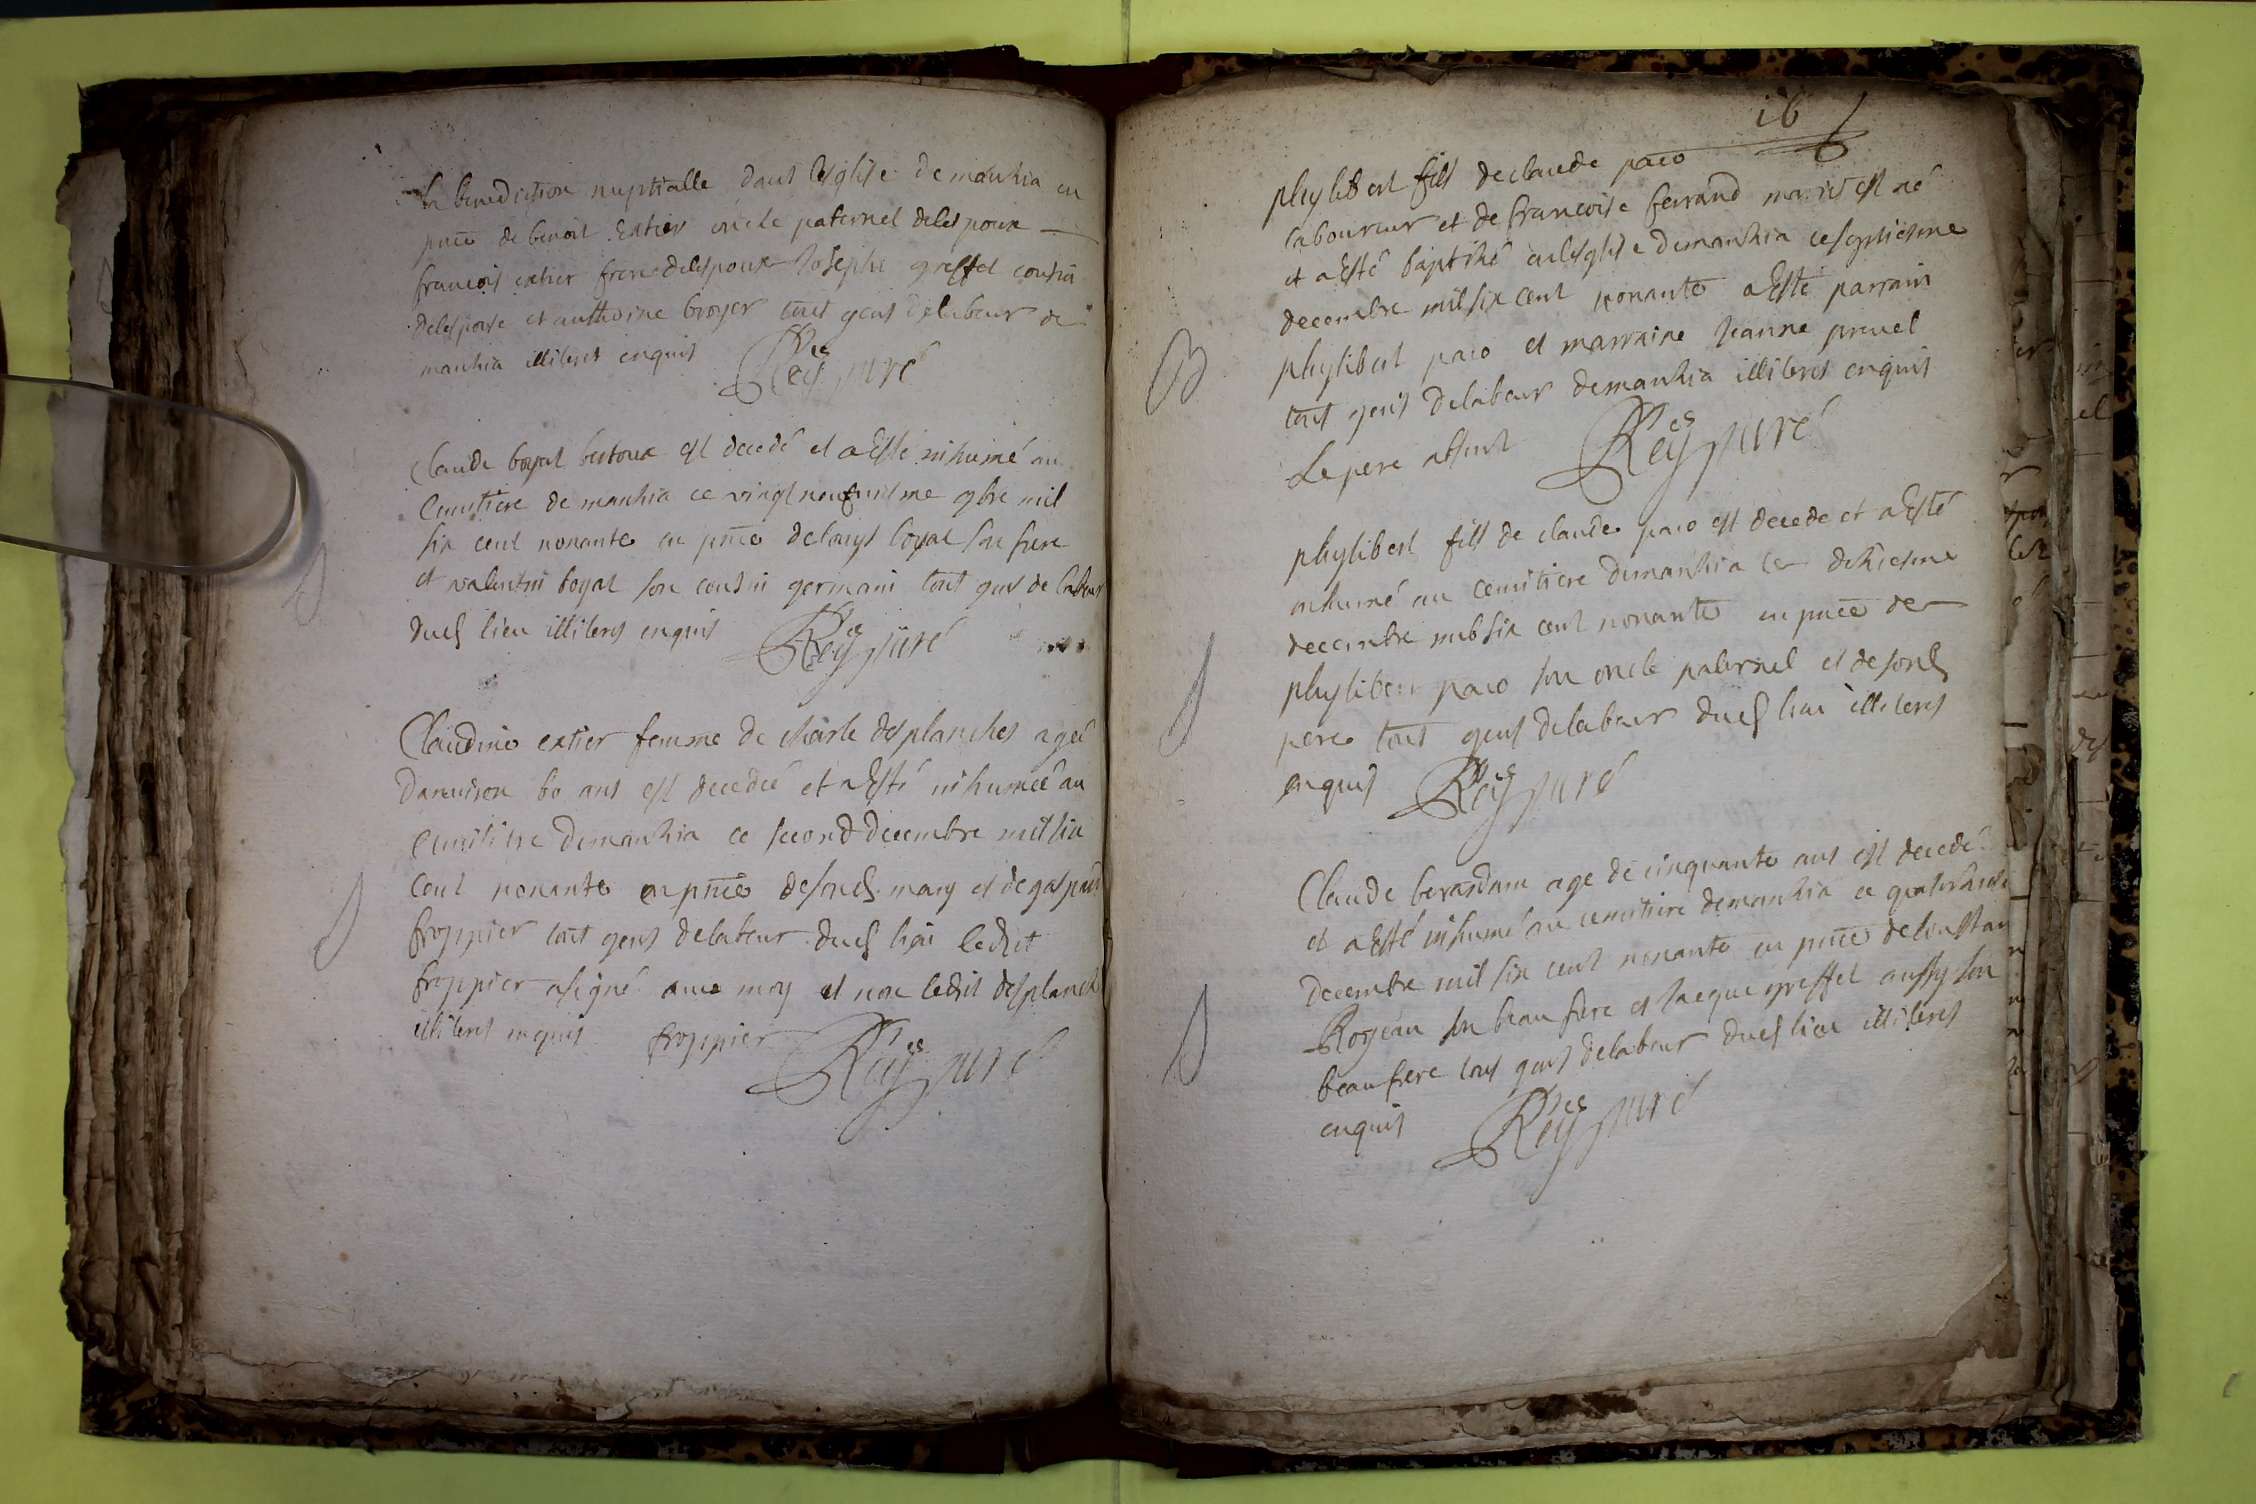 la benediction nuptialle dans lesglise de manhia en
pnce de benoit extier oncle paternel delespoux
francois extier frere delespoux Joseph greffet cousin
delespouse et anthoine broyer tous gens delabeur de
manhia illiteres enquis Rey curé
Claude boyat bertoux est decedé et a Esté inhumé au
cemitiere de manhia ce vingt neufviesme 9bre mil
six cent nonante en pnce de louys boyat son frere
et valentin boyat son cousin germain tout gens de labeur
dud lieu illiteres enquis Rey curé
Claudine extier femme de charle desplanches agée
danviron 60 ans est decedée et a Esté inhumée au
cemitiere demanhia ce second decembre mil six
cent nonante en pnce de sond mary et de gaspard
froppier tout gens delabeur dud lieu ledit
froppier a signé avec moy et non ledit desplanche
illiteres enquis froppier Rey curé
16
phylibert fils de claude paco
laboureur et de francoise ferrand mariés est né
et a Esté baptisé en lesglise demanhia ce septiesme
decembre mil six cent nonante a Esté parrain
phylibert paco et marraine Jeanne pruel
tous gens delabeur demanhia illiteres enquis
Le pere absent Rey curé
phylibert fils de claude paco est decede et a Esté
inhumé au cemitiere demanhia le dixiesme
decembre mil six cent nonante en pnce de
phylibert paco son oncle paternel et de sond
pere tous gens delabeur dud lieu illiteres
enquis Rey curé
Claude berardam age de cinquante ans est decedé
et a Esté inhumé au cemitiere demanhia ce quatorziesme
decembre mil six cent nonante en pnce de constan
Rogeau son beau frere et Jaeque greffet aussy son
beaufrere tous gens delabeur dud lieu illiteres
enquis Rey curé